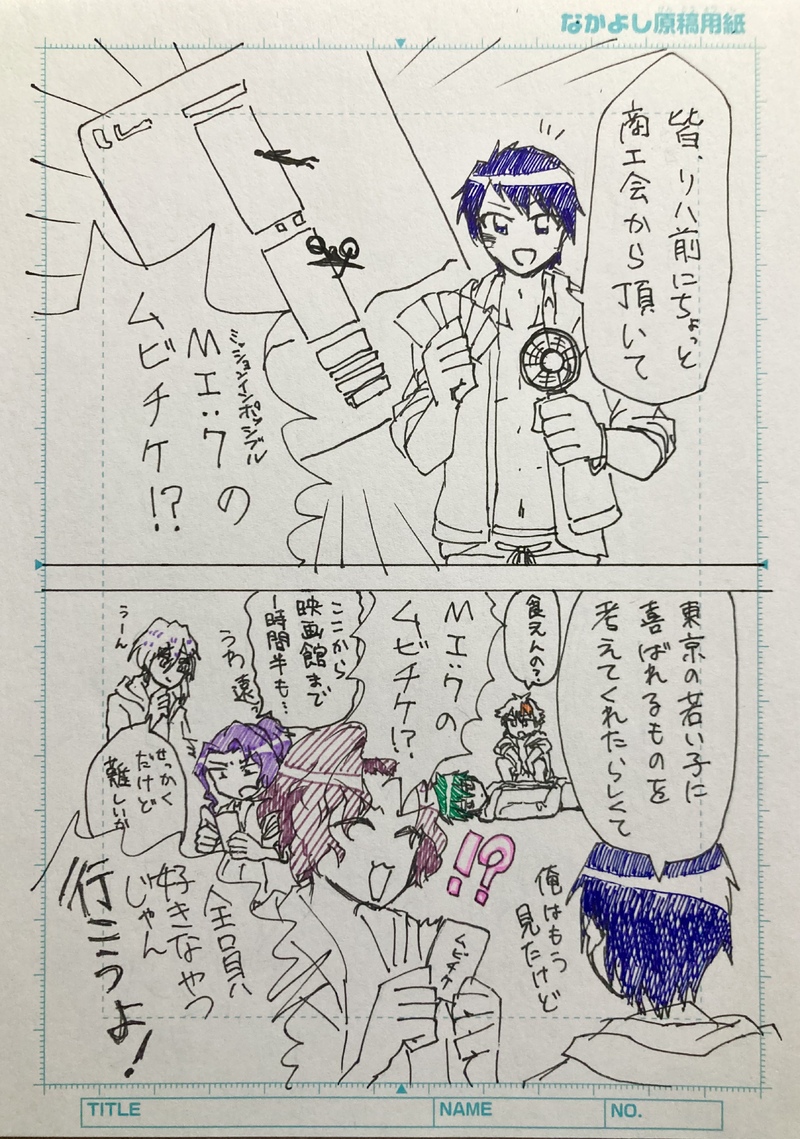 なかよし原稿用紙
皆、リハ前にちょっと
商工会から頂いて
ミッションインポッシブル
MI:7の
ムビチケ!?
東京の若い子に
喜ばれるものを
考えてくれたらしくて
俺はもう
見たけど
食えんの?
MI:7の
ムビチケ!?
!?
ムビチケ
ここから
映画館まで
1時間半も…
うわ遠っ
うーん
せっかく
だけど
難しいか
全員
好きなやつ
じゃん
行こうよ!
TITLE
NAME
NO.